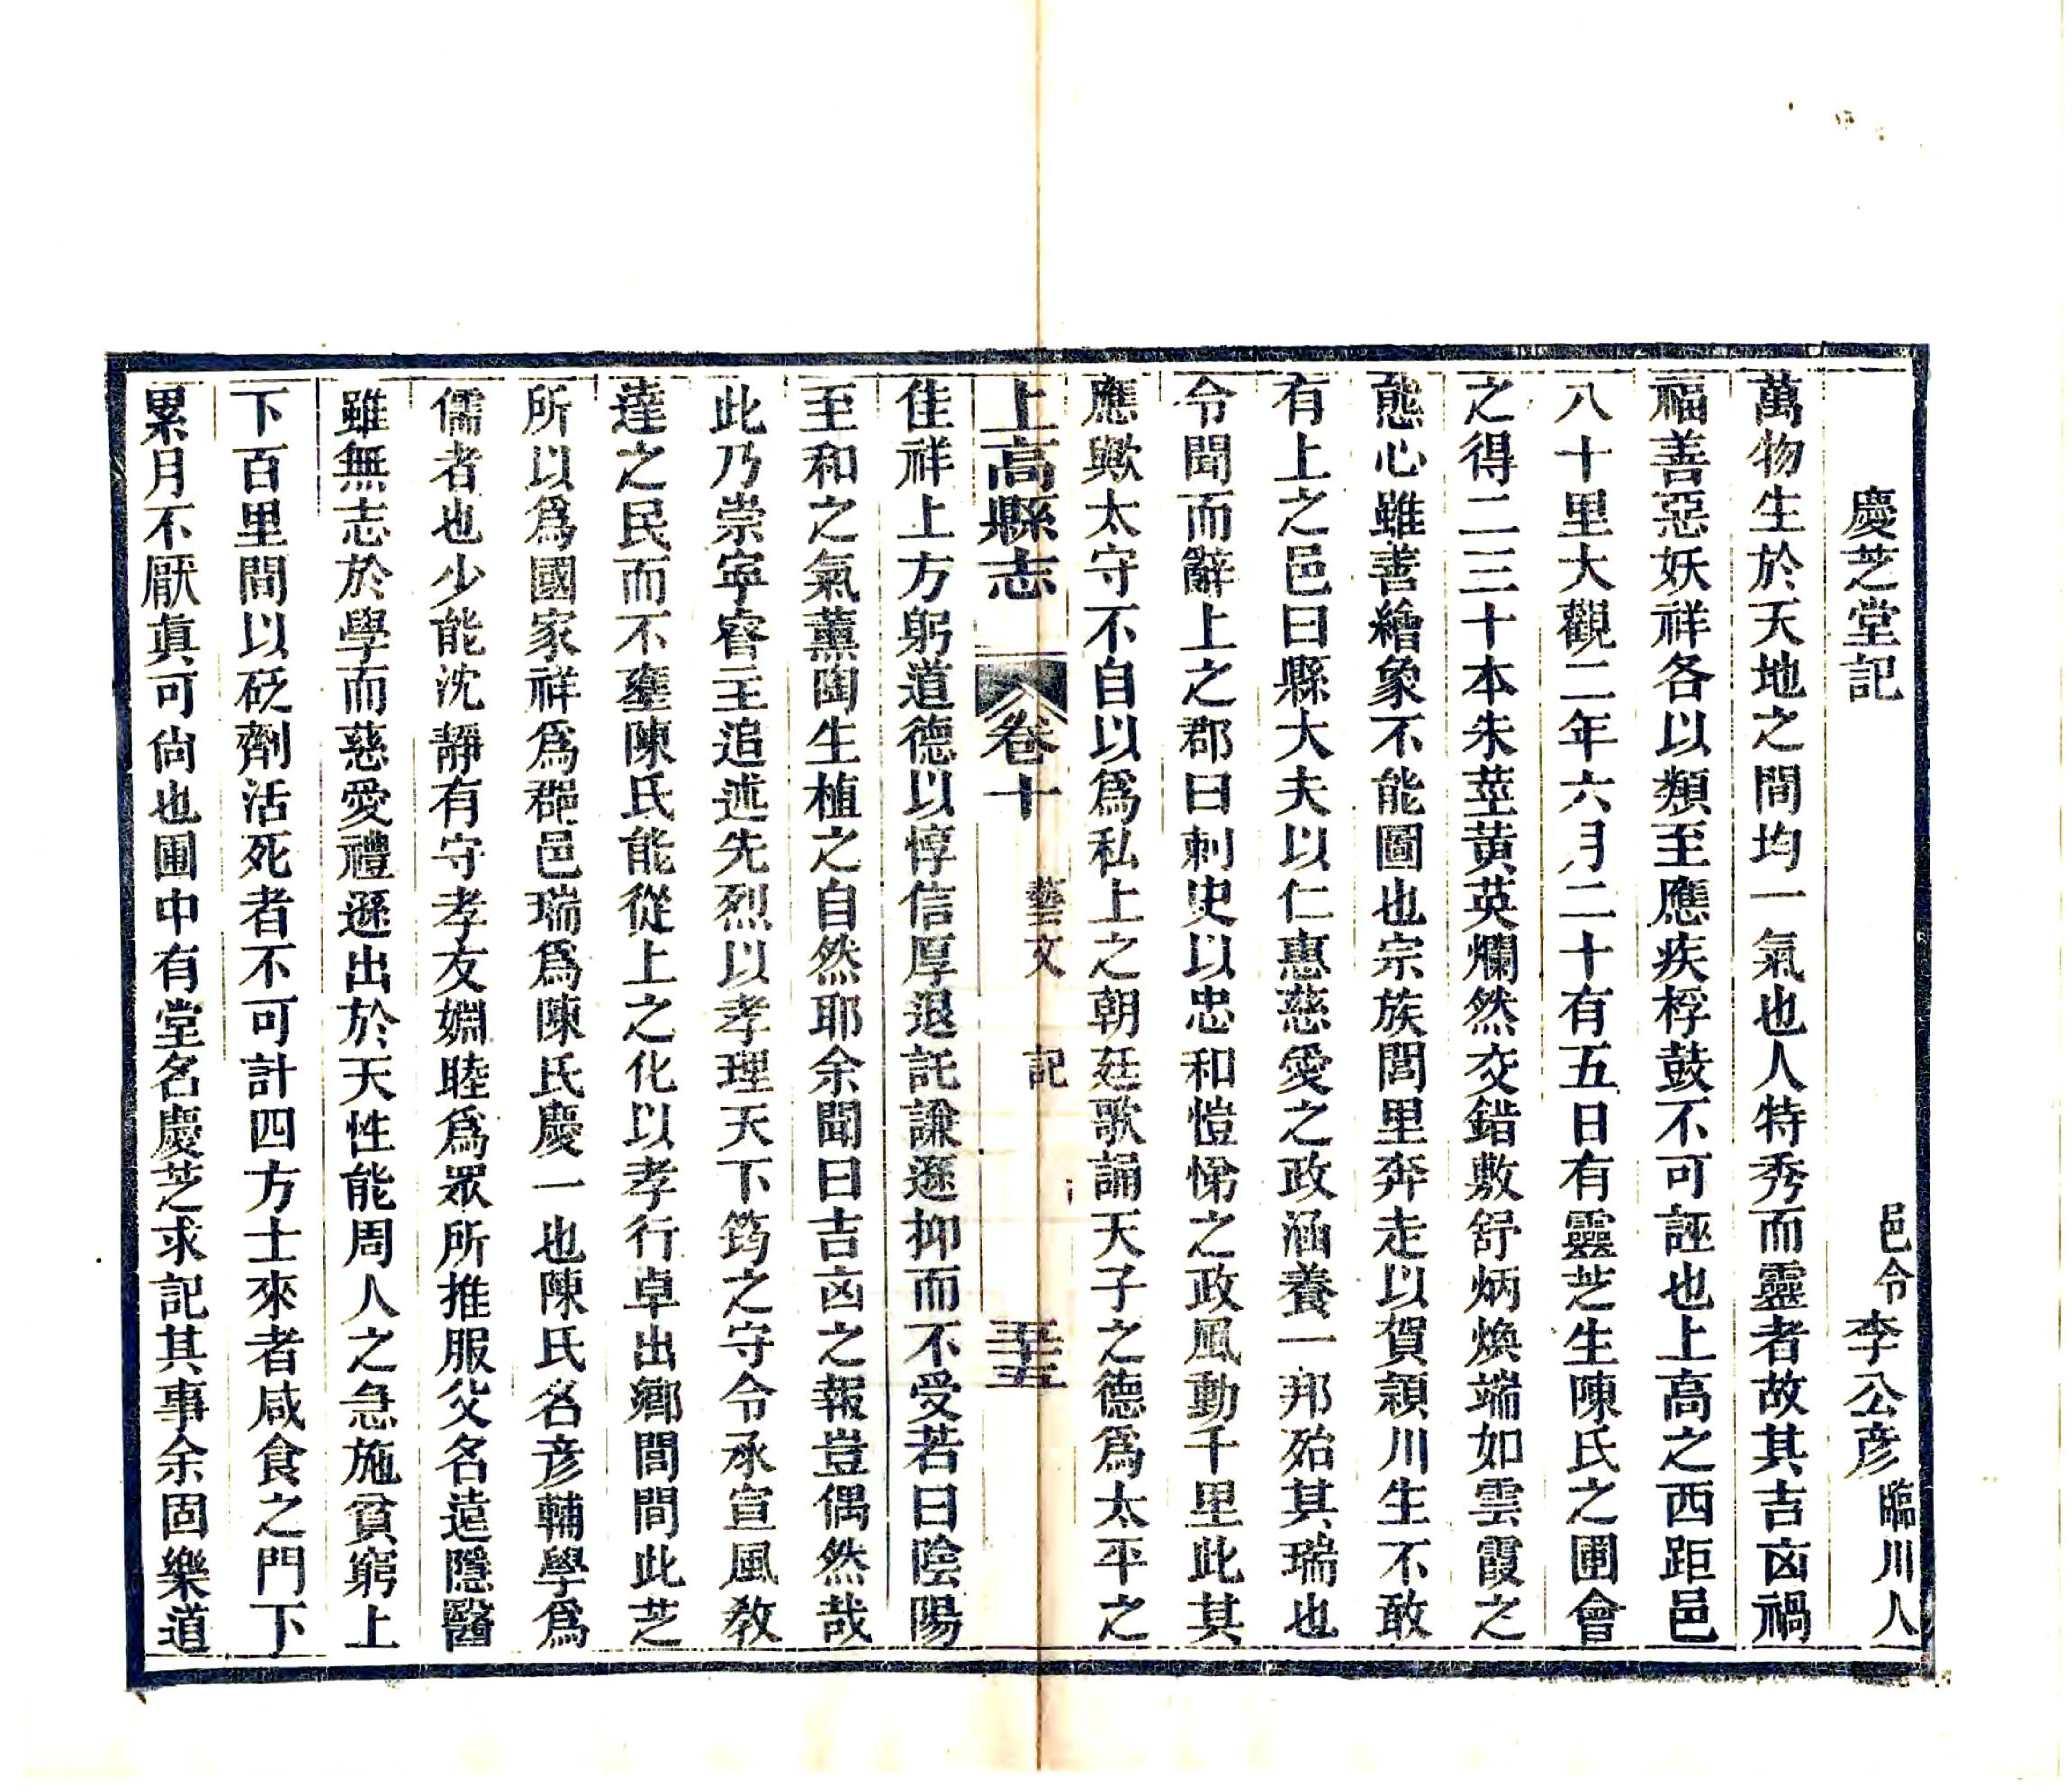 慶芝堂記　邑令李公彦臨川人
萬物生於天地之間均一氣也人特秀而靈者故其吉凶禍
福善惡妖祥各以類至應疾桴鼓不可誣也上高之西距邑
八十里大觀二年六月二十有五日有靈芝生陳氏之圃會
之得二三十本朱莖黃英爛然交錯敷舒炳煥端如雲霞之
態心雖善繪象不能圖也宗族閭里奔走以賀潁川生不敢
有上之邑曰縣大夫以仁惠慈愛之政涵養一邦殆其瑞也
令聞而辭上之郡曰刺史以忠和愷悌之政風動千里此其
應歟太守不自以爲私上之朝廷歌誦天子之德爲太平之
上高縣志　卷十　藝文　記　三十五
佳祥上方躬道德以惇信厚退託謙遜抑而不受若曰陰陽
至和之氣薰陶生植之自然耶余聞曰吉凶之報豈偶然哉
此乃崇寧睿主追述先烈以孝理天下筠之守令承宣風敎
達之民而不壅陳氏能從上之化以孝行卓出鄉閭間此芝
所以爲國家祥爲郡邑瑞爲陳氏慶一也陳氏名彦輔學爲
儒者也少能沈靜有守孝友婣睦爲眾所推服父名遠隱醫
雖無志於學而慈愛禮遜出於天性能周人之急施貧窮上
下百里間以砭劑活死者不可計四方士來者咸食之門下
累月不厭眞可尙也圃中有堂名慶芝求記其事余固樂道